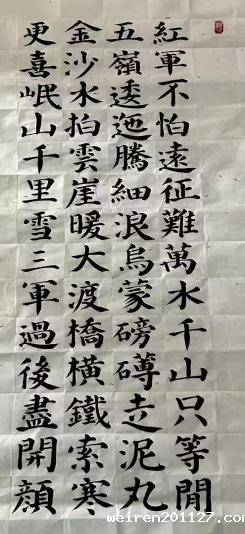 紅軍不怕遠征難萬水千山只等閒
五嶺逶迤騰細浪烏蒙磅礡走泥丸
金沙水拍雲崖暖大渡橋橫鐵索寒
更喜岷山千里雪三軍過後盡開顏
weiren201127.com